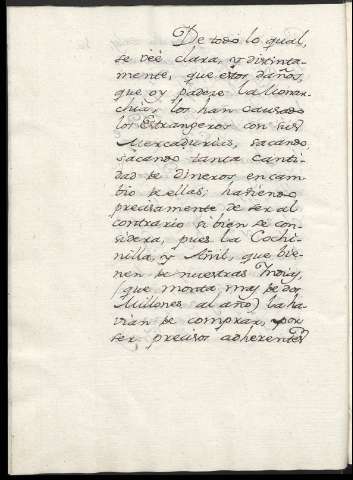 De todo lo qual,
se veé clara, y distinta-
mente, que estos daños,
que oy padeze la Monar-
chia, los han causado
los Estrangeros con sus
Mercadurias, sacando,
sacando tanta canti-
dad de Dineros en cam-
bio de ellas, haviendo
precisamente de ser al
contrario si bien se con-
sidera, pues la Cochi-
nilla, y Añil, que vie-
nen de nuestras Indias,
(que monta mas de dos
Millones al año) la ha-
vian de comprar, por
ser precisos adherentes